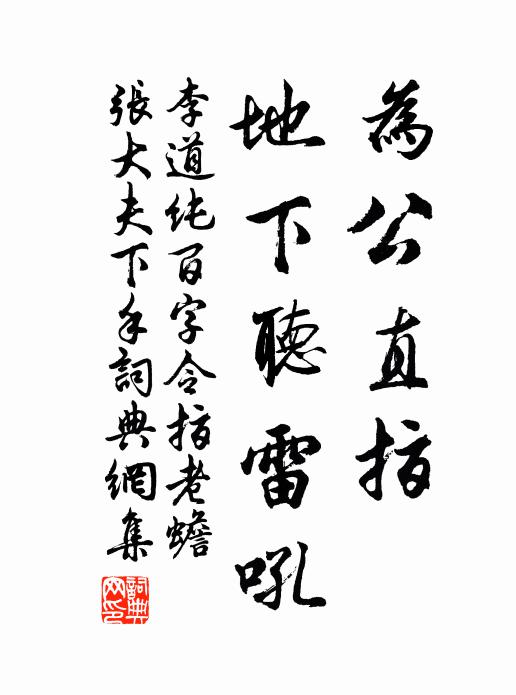 為公直指
地下聽雷吼
李道純百字令指老蟾
張大夫下手詞典網集
詞典網印